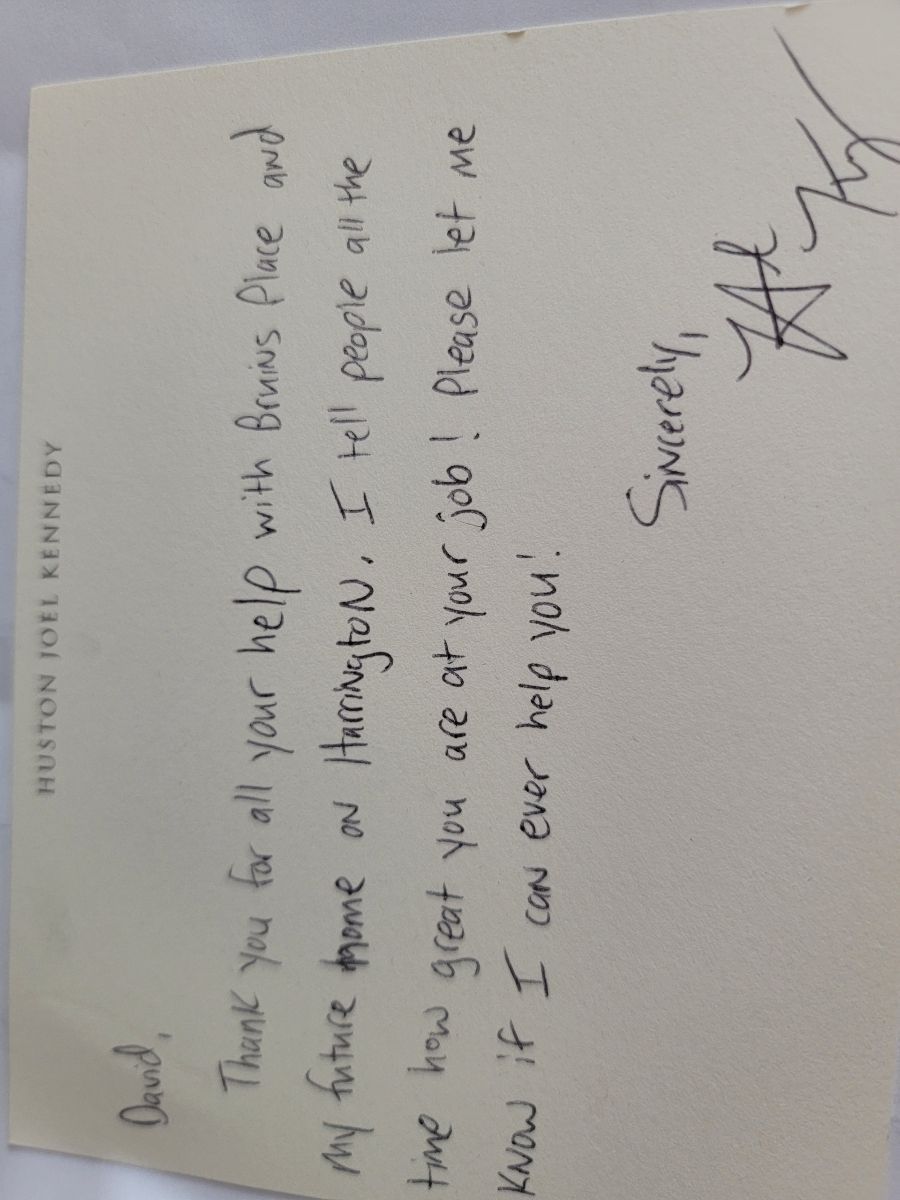 HUSTON JOEL KENNEDY
David,
Thank you for all your help with Bruins Place and
my future home on Harrington. I tell people all the
time how great you are at your job! Please let me
know if I can ever help you!
Sincerely,